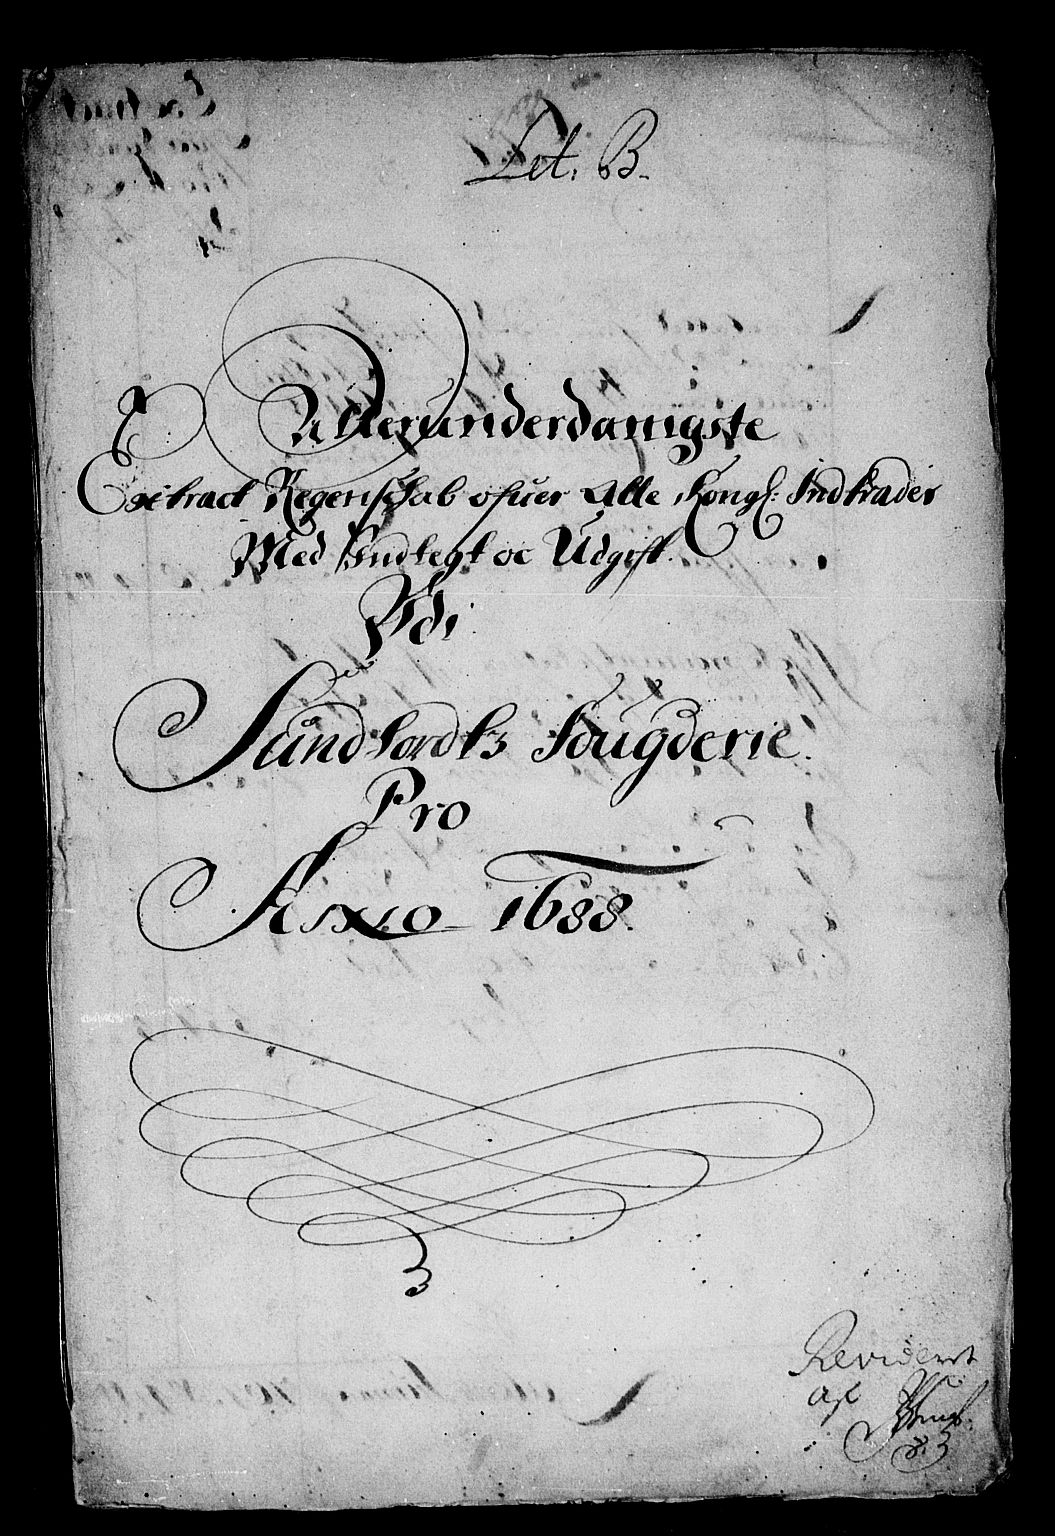 Let. B.
Allerunderdanigste
Extract Regenschab ofuer Alle Kongl: Indkrader
Med Indtegt oc Udgift.
Udi
Sundhordlehns Fougderie.
Pro
Anno 1688.
Revideret
af